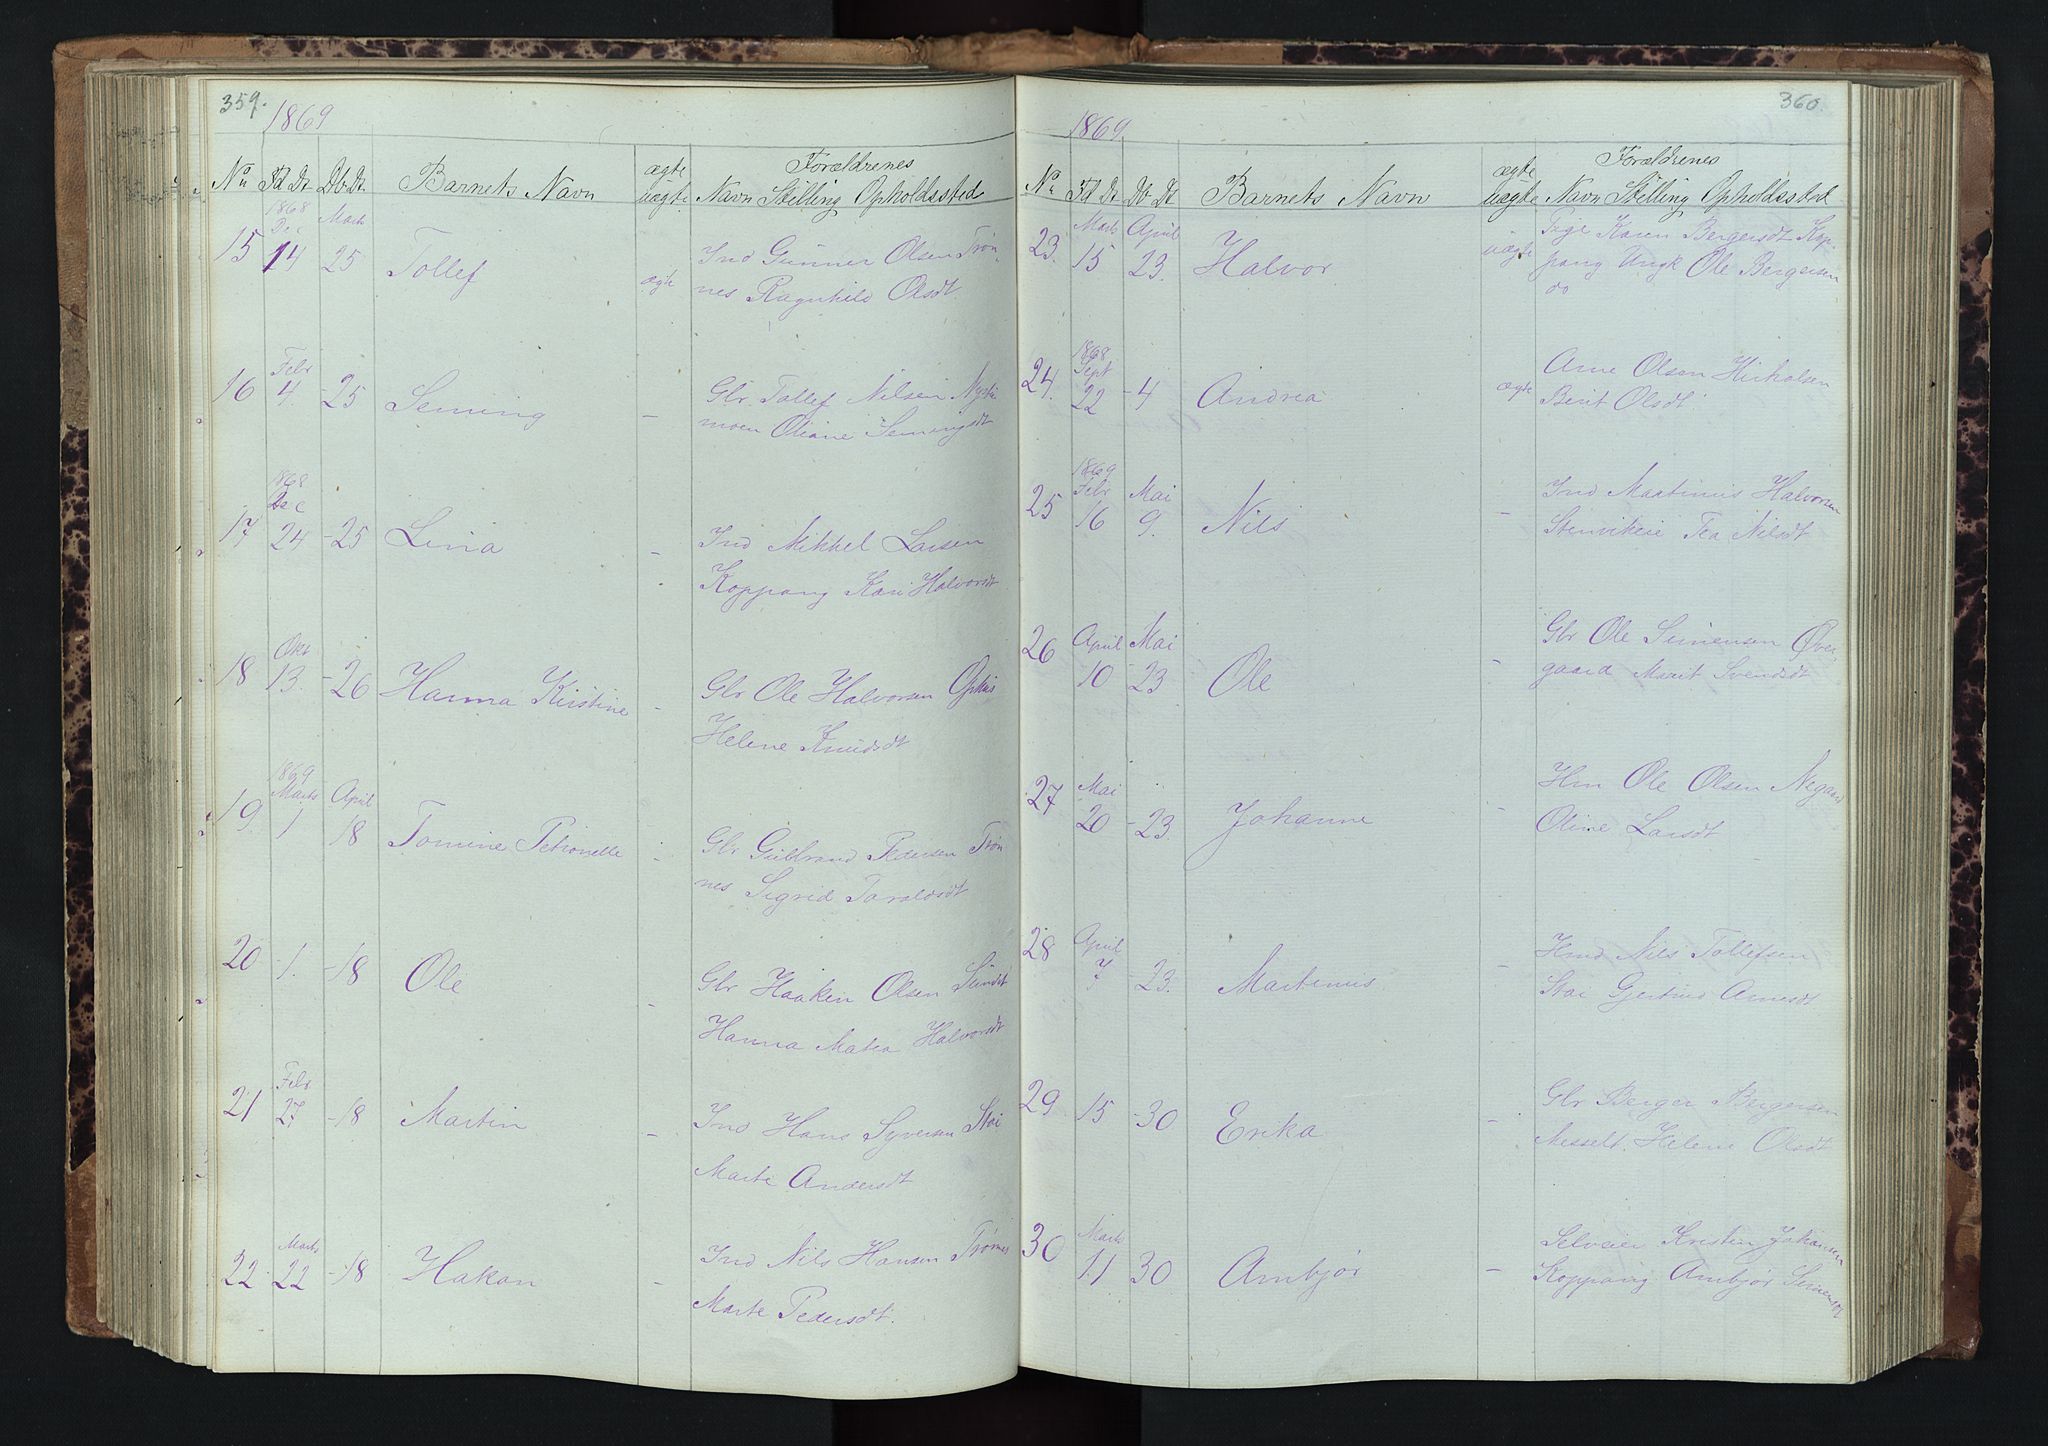 359.
1869
No Fd Dt Db Dt Barnets Navn ægte uægte Forældrenes Navn Stilling Opholdssted
1868 Dec Marts
15 14 25 Tollef ægte Ind Gunner Olsen Trøn-
nes Ragnhild Olsdt
Febr
16 4 -25 Seming - Gbr Tollef Nilsen
moen Oliane Semingsdt
1868 Dec
17 24 -25 Lina - Ind Mikkel Larsen
Koppang Kari Halvorsdt
Okt
18 13. -26 Hanna Kristine - Gbr Ole Halvorsen Ophus
Helene Knudsdt
1869 Marts April
19 1 18 Tomine Petronelle - Gbr Gulbrand Pedersen Trøn
nes Sigrid Taraldsdt
20 -1. -18 Ole - Gbr Haaken Olsen Sundet
Hanna Matea Halvorsdt
Febr
21 27. -18 Martin - Ind Hans Syversen Stai
Marte Andersdt
Marts
22 22 -18 Hakon - Ind Nils Hansen Trønnes
Marte Pedersdt.
360.
1869.
No Fd Dt Db Dt Barnets Navn ægte uægte Forældrenes Navn Stilling Opholdssted
Marts April
23. 15 23. Halvor uægte Pige Karen Bergersdt Kop-
pang Ungk Ole Bergersen
do
1868 Sept
24. 22 -4 Andrea ægte Arne Olsen
Berit Olsdt
1869 Febr Mai
25 16 9. Nils - Ind Martinus Halvorsen
Stenvikeie Tea Nilsdt
April Mai
26 10 23 Ole - Gbr Ole Simensen Øver-
gaard Marit Svendsdt
Mai
27 20 -23. Johanne - Hm Ole Olsen Negaard
Oline Larsdt
April
28 7 23. Martinus - Hmd Nils Tollefsen
Stai Gjertrud Arnesdt
29 15 -30 Erika - Gbr Berger Bergersen
Messelt. Helene Olsdt
Marts
30 11 30 Ambjør - Selveier Kristen Johansen
Koppang Ambjør Simensdt